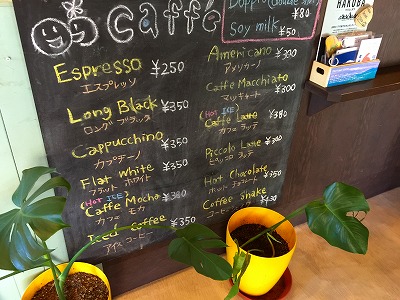 caffé
Doppio (double shot) ¥80
Soy milk ¥50
Espresso ¥250
エスプレッソ
Long Black ¥350
ロング ブラック
Cappuccino ¥350
カプチーノ
Flat white ¥350
フラット ホワイト
(HOT ICE)
Caffe Mocha ¥380
カフェ モカ
Iced coffee ¥350
アイス コーヒー
Americano ¥300
アメリカーノ
Caffe Macchiato ¥300
マッキャート
(HOT ICE)
Caffe Latte ¥380
カフェ ラテ
Piccolo Latte
ピッコロ ラテ
Hot Chocolate ¥350
ホット チョコレート
Coffee Shake
HAKUBA